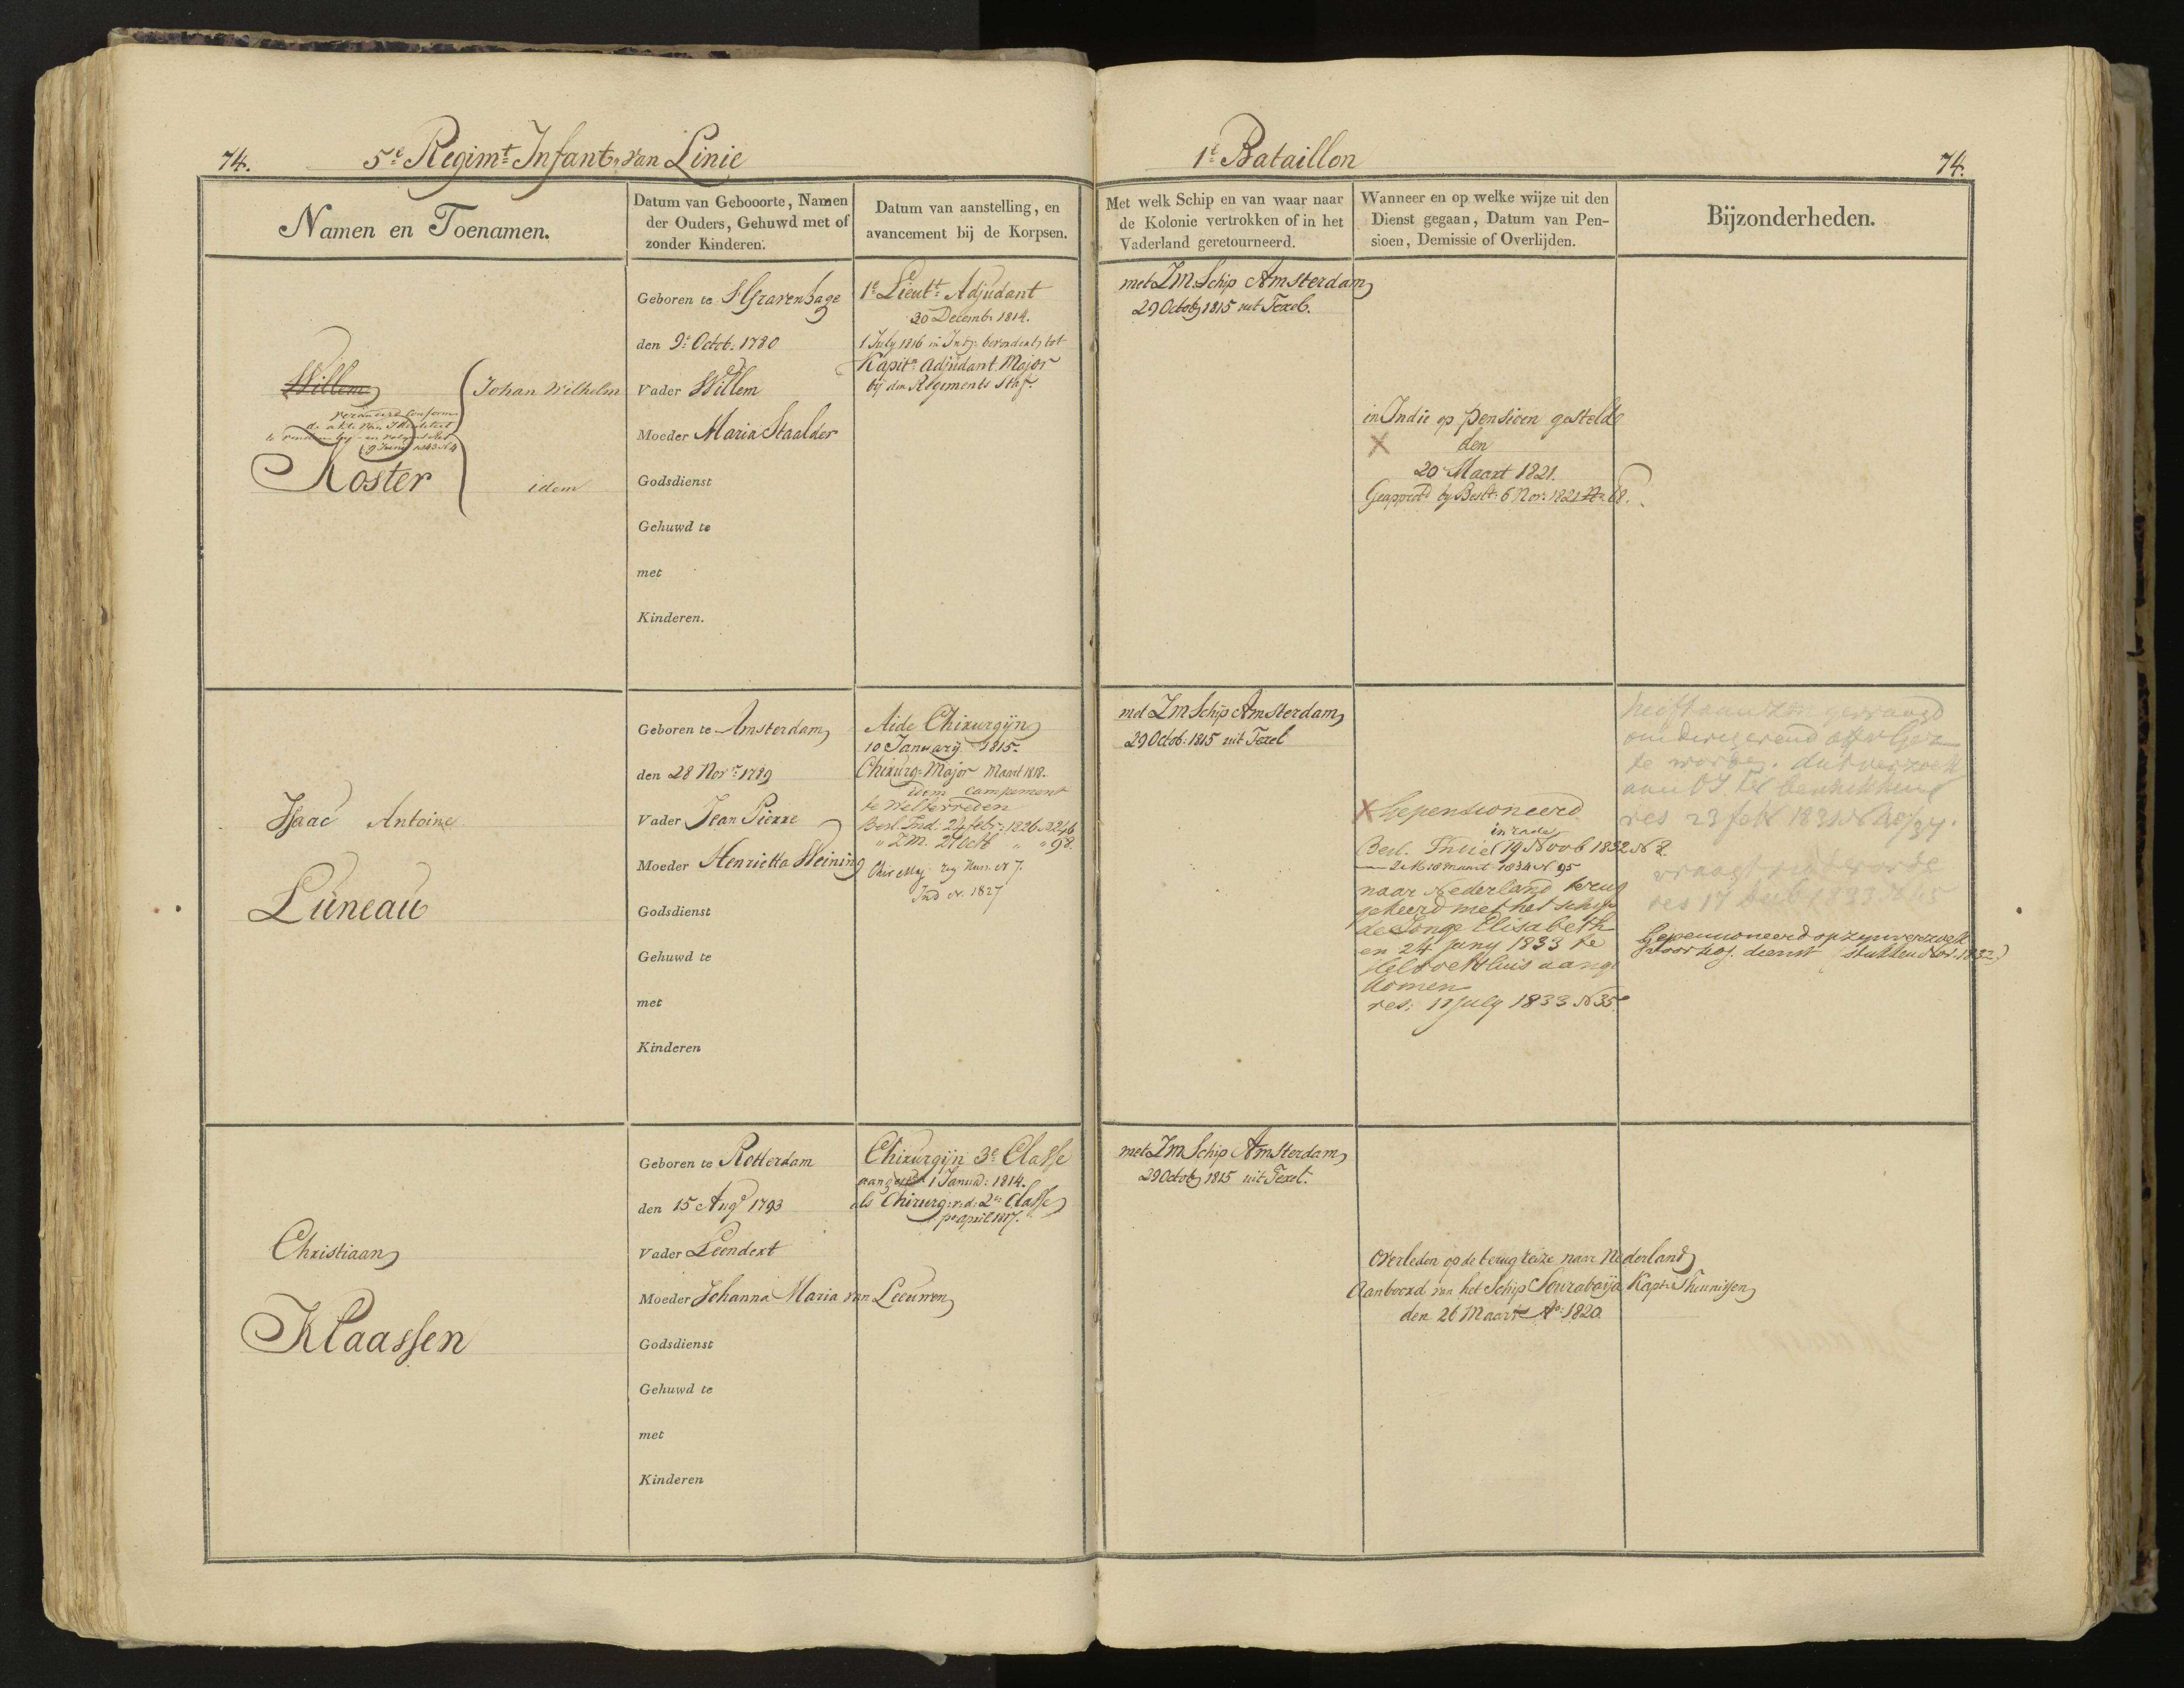 74.
5e Regimt Infantr van Linie
1e Bataillon
74.
Namen en Toenamen.
Datum van Gebooorte, Namen
der Ouders, Gehuwd met of
zonder Kinderen.
Datum van aanstelling, en
avancement bij de Korpsen.
Met welk Schip en van waar naar
de Kolonie vertrokken of in het
Vaderland geretourneerd.
Wanneer en op welke wijze uit den
Dienst gegaan, Datum van Pen-
sioen, Demissie of Overlijden.
Bijzonderheden.
Willem
Johan Wilhelm
Koster
idem
Geboren te S'Gravenhage
den 9e Octob. 1780
Vader Willem
Moeder Maria Staalder
Godsdienst
Gehuwd te
met
Kinderen.
1e Lieutt Adjudant
30 Decemb. 1814.
1 July 1816 in Indj: bevordert tot
Kapitn Adjudant Major
bij den Regiments Staf.
met ZM. Schip Amsterdam
29 Octob 1815 uit Texel.
in Indie op pensioen gesteld
X den
20 Maart 1821.
Geapprotd by Beslt: 6 Nov: 1821 No. 68.
Isaac Antoine
Luneau
Geboren te Amsterdam
den 28 Novr 1789
Vader Jean Pierre
Moeder Henrietta Weining
Godsdienst
Gehuwd te
met
Kinderen
Aide Chirurgijn
10 January 1815.
Chirurg: Major Maart 1818.
idem Campement
te Weltevreden
Besl. Ind. 24 febr: 1826 N 246
" ZM. 21 Octb " " 98.
Chir Maj reg Hus. N 7.
Ind N. 1827
met ZM Schip Amsterdam
29 Octob: 1815 uit Texel
X Gepensioneerd
in rade
Besl. Indie 19 Novb 1832 N 2
ZM 18 maart 1834 N 95
naar Nederland terug
gekeerd met het schip
de Jonge Elisabeth
en 24 Juny 1833 te
Helvoetsluis aange
komen
res: 11 July 1833 N 35
heeft aan ZM gevraagd
om dirigerend officier
te worden. dit verzoek
res 23 feb 1831 N
vraagt
res 17 1833 N 45
Gepensioneerd op zyn verzoek
voor dienst
Christiaan
Klaassen
Geboren te Rotterdam
den 15 Augt 1793
Vader Leendert
Moeder Johanna Maria van Leeuwen
Godsdienst
Gehuwd te
met
Kinderen
Chirurgijn 3e Classe
aangest 1 Janua: 1814.
als Chirurg: v.d. 2e Classe
po april 1817.
met ZM Schip Amsterdam
29 Octob 1815 uit Texel.
Overleden op de terug reize naar Nederland
Aanboord van het Schip Sourabaija Kapt. Theunissen
den 26 Maart Ao: 1820.